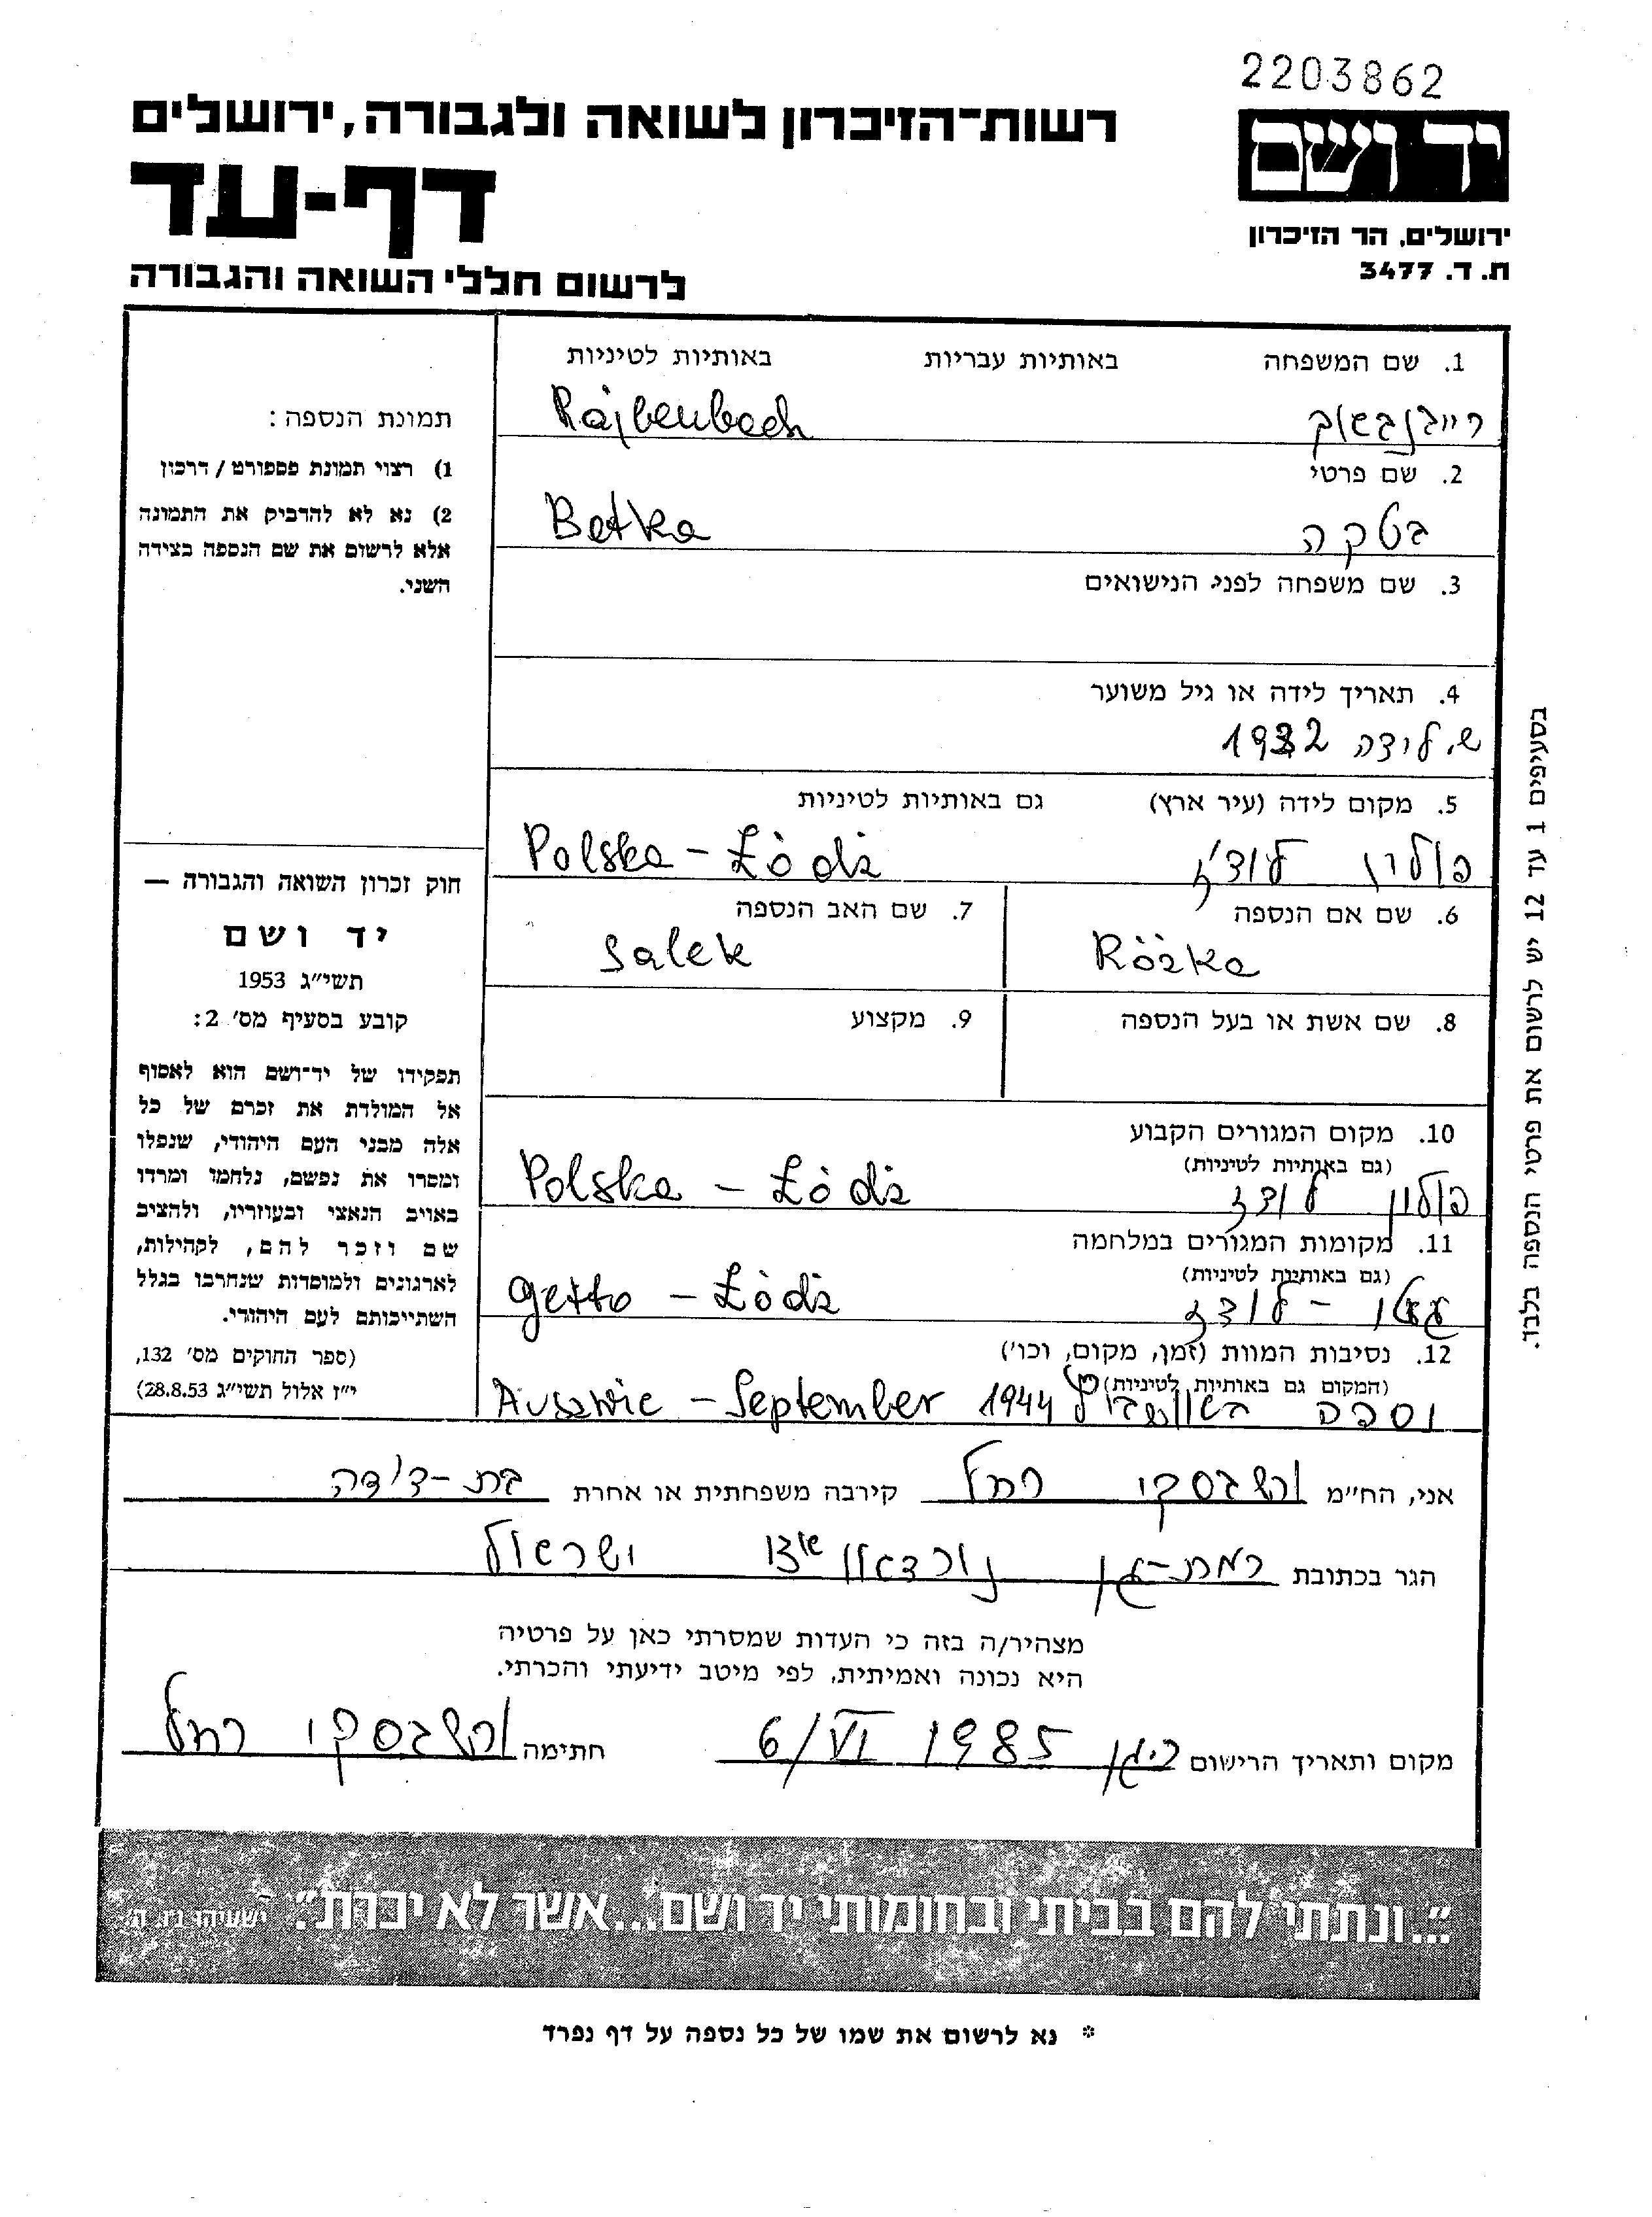 2203862
רשות־הזיכרון לשואה ולגבורה, ירושלים
יד ושם
דף-עד
ירושלים, הר הזיכרון
ת. ד. 3477
לרשום חללי השואה והגבורה
1. שם המשפחה באותיות עבריות באותיות לטיניות
Rajbenbach
2. שם פרטי
בטקה Betka
3. שם משפחה לפני הנישואים
4. תאריך לידה או גיל משוער
ש. לידה 1932
5. מקום לידה (עיר ארץ) גם באותיות לטיניות
פולין לודז' Polska - Łódź
6. שם אם הנספה 7. שם האב הנספה
Rózka Salek
8. שם אשת או בעל הנספה 9. מקצוע
10. מקום המגורים הקבוע
(גם באותיות לטיניות)
פולין לודז Polska - Łódź
11. מקומות המגורים במלחמה
(גם באותיות לטיניות)
גטו - לודז getto - Łódź
12. נסיבות המוות (זמן, מקום, וכו')
(המקום גם באותיות לטיניות)
Auszwic - September 1944
תמונת הנספה:
1) רצוי תמונת פספורט / דרכון
2) נא לא להדביק את התמונה
אלא לרשום את שם הנספה בצידה
השני.
חוק זכרון השואה והגבורה —
יד ושם
תשי״ג 1953
קובע בסעיף מס' 2:
תפקידו של יד־ושם הוא לאסוף
אל המולדת את זכרם של כל
אלה מבני העם היהודי, שנפלו
ומסרו את נפשם, נלחמו ומרדו
באויב הנאצי ובעוזריו, ולהציב
שם וזכר להם, לקהילות,
לארגונים ולמוסדות שנחרבו בגלל
השתייכותם לעם היהודי.
(ספר החוקים מס' 132,
י״ז אלול תשי״ג 28.8.53)
בסעיפים 1 עד 12 יש לרשום את פרטי הנספה בלבד.
אני, הח״מ רחל קירבה משפחתית או אחרת בת-דודה
הגר בכתובת רמת-גן ישראל
מצהיר/ה בזה כי העדות שמסרתי כאן על פרטיה
היא נכונה ואמיתית, לפי מיטב ידיעתי והכרתי.
מקום ותאריך הרישום ר.גן 6/VI 1985 חתימה רחל
״...ונתתי להם בביתי ובחומותי יד ושם...אשר לא יכרת״. ישעיהו נ״ו, ה'
* נא לרשום את שמו של כל נספה על דף נפרד